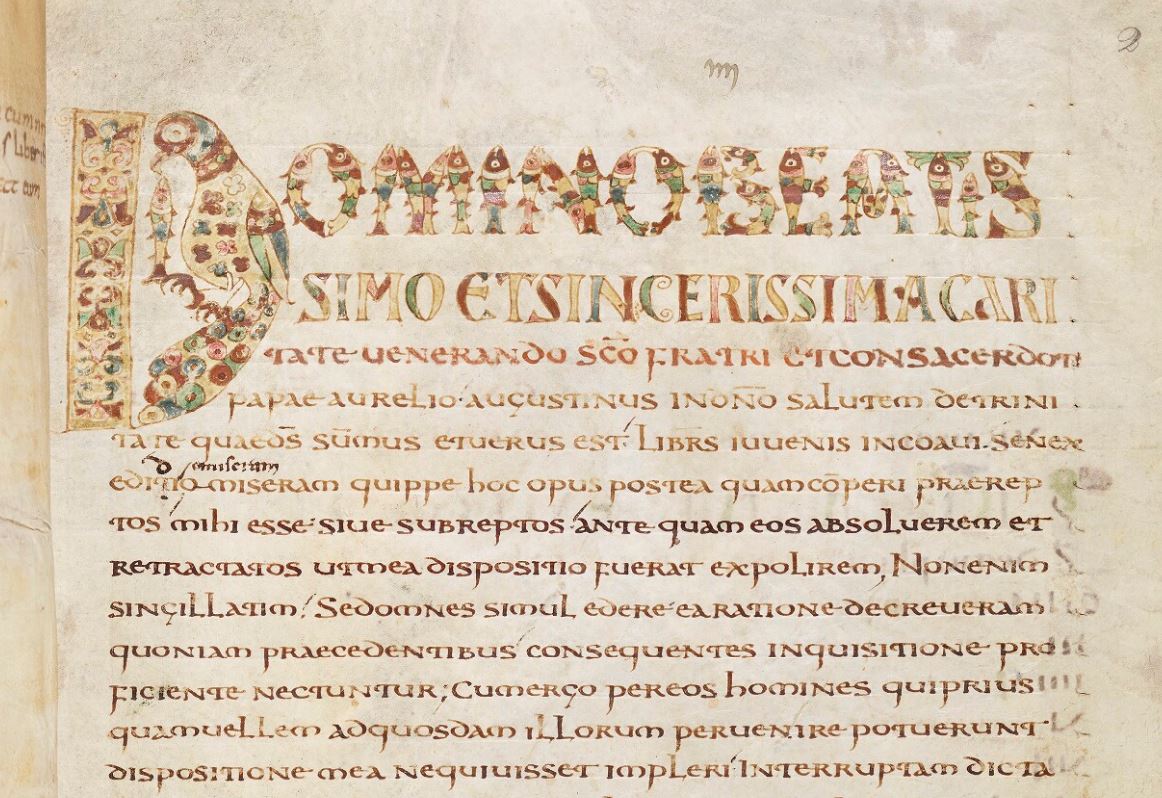 2
IIII
DOMINO BEATIS
SIMO ET SINCERISSIMA CARI
TATE UENERANDO SC̅O FRATRI ET CONSACERDOTI
PAPAE AURELIO· AUGUSTINUS IN DN̅O SALUTEM DETRINI
TATE QUAE DS̅ SUM̅MUS ET UERUS EST· LIBRS IUUENIS INCOAUI. SENEX
d emiseram
EDITIO MISERAM QUIPPE HOC OPUS POSTEA QUAM CO̅PERI PRAEREP
TOS MIHI ESSE SIUE SUBREPTOS ANTE QUAM EOS ABSOLUEREM ET
RETRACTATOS UT MEA DISPOSITIO FUERAT EXPOLIREM, NON ENIM
SINGILLATIM, SED OMNES SIMUL EDERE EA RATIONE DECREUERAM
QUONIAM PRAECEDENTIBUS CONSEQUENTES INQUISITIONE PRO
FICIENTE NECTUNTUR; CUM ERGO PER EOS HOMINES QUI PRIUS
QUAM UELLEM AD QUOSDAM ILLORUM PERUENIRE POTUERUNT
DISPOSITIONE MEA NEQUIUISSET IMPLERI INTERRUPTAM DICTA